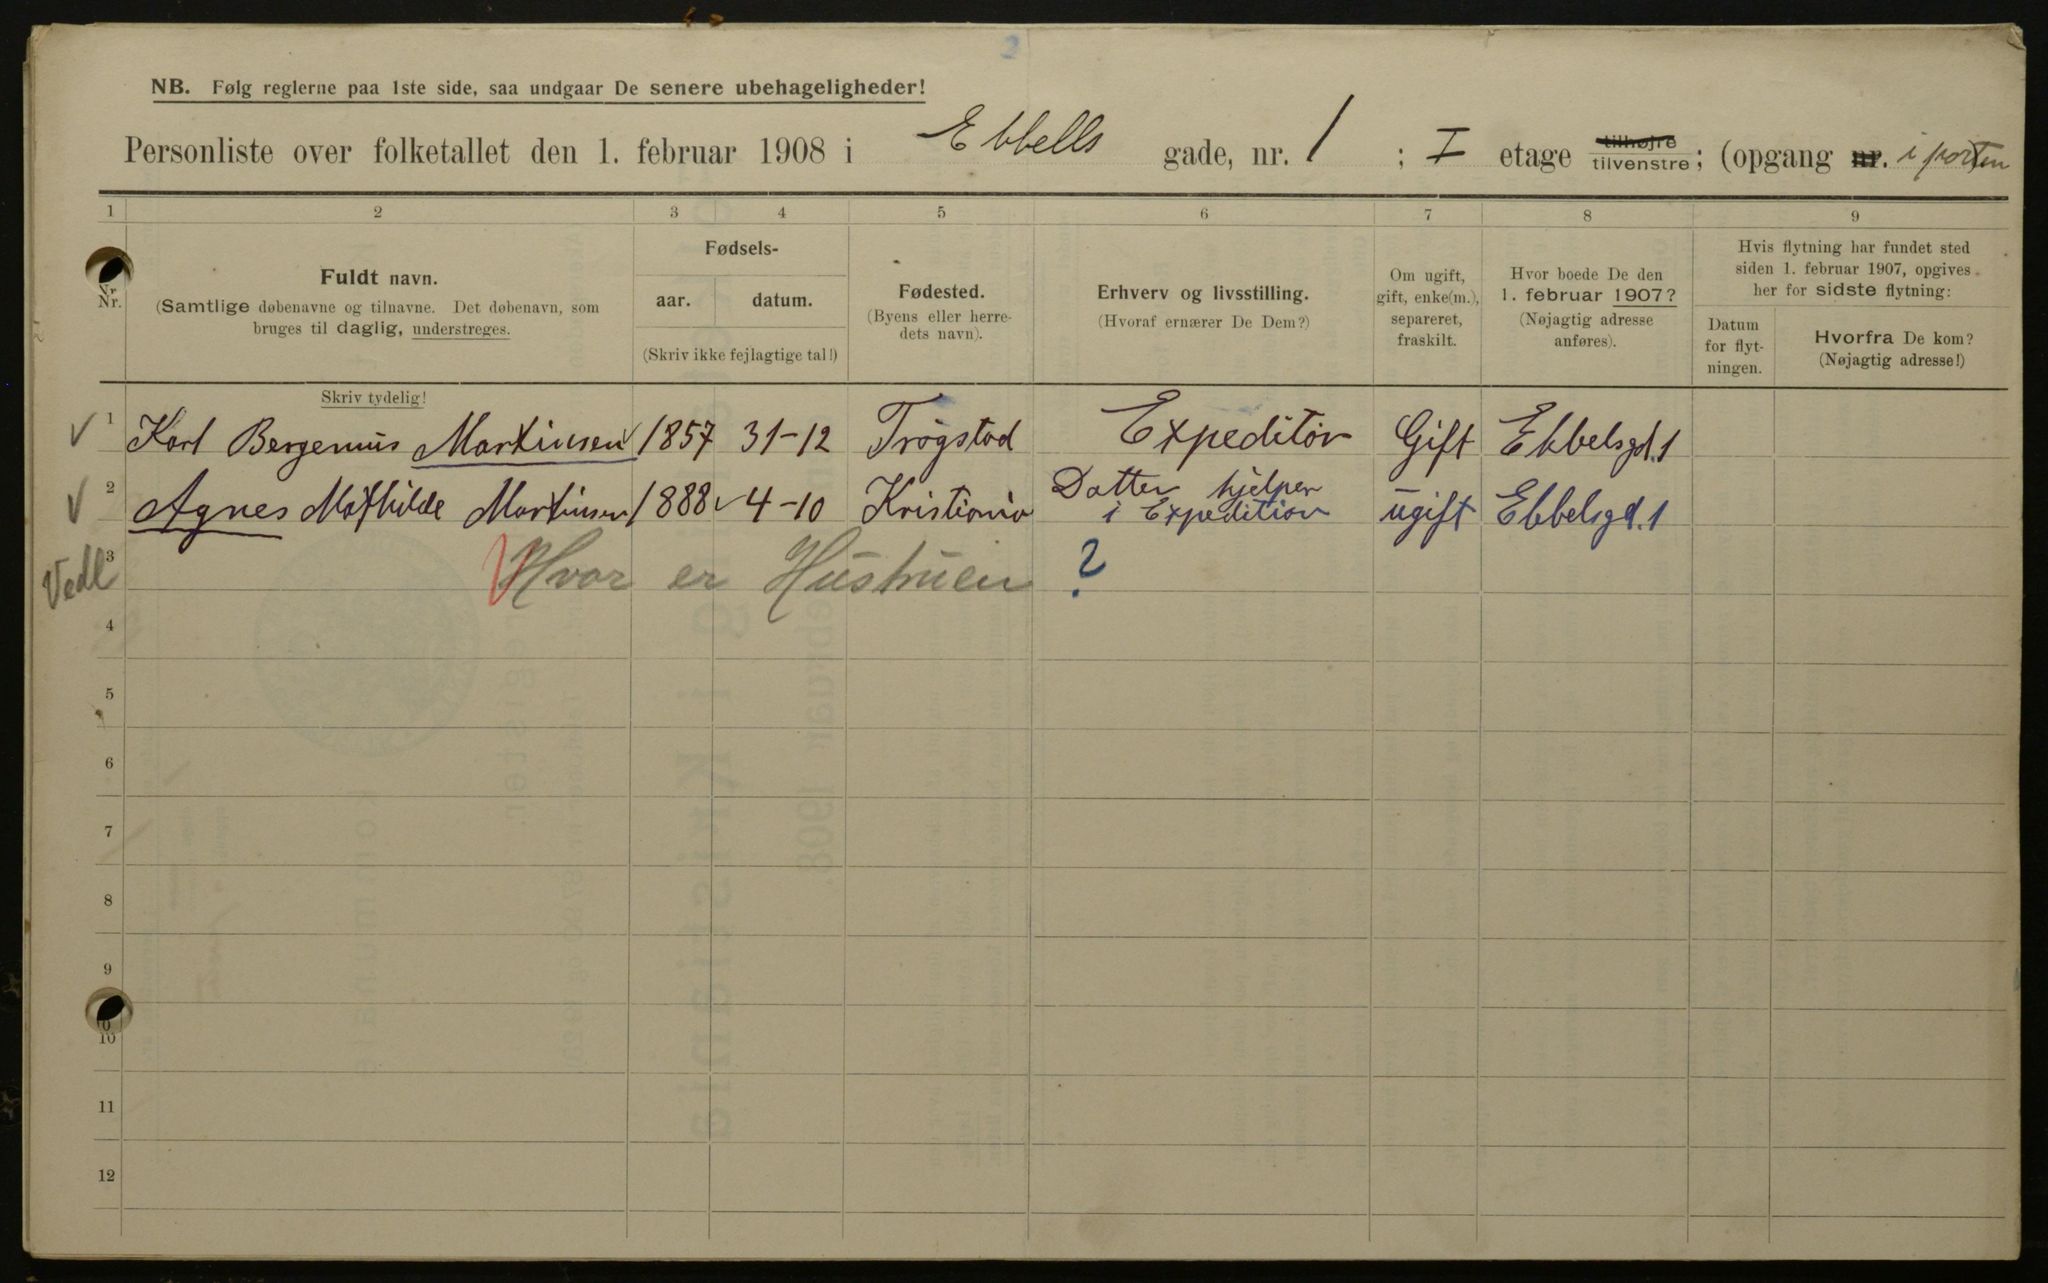 NB. Følg reglerne paa 1ste side, saa undgaar De senere ubehageligheder!
Personliste over folketallet den 1. februar 1908 i Ebbells gade, nr. 1 ; I etage tilhøjre tilvenstre ; (opgang nr. i porten
1 2 3 4 5 6 7 8 9
Nr.
Fuldt navn.
(Samtlige døbenavne og tilnavne. Det døbenavn, som
bruges til daglig, understreges.
Fødsels-
aar. datum.
(Skriv ikke fejlagtige tal!)
Fødested.
(Byens eller herre-
dets navn).
Erhverv og livsstilling.
(Hvoraf ernærer De Dem?)
Om ugift,
gift, enke(m.),
separeret,
fraskilt.
Hvor boede De den
1. februar 1907?
(Nøjagtig adresse
anføres).
Hvis flytning har fundet sted
siden 1. februar 1907, opgives
her for sidste flytning:
Datum
for flyt-
ningen.
Hvorfra De kom?
(Nøjagtig adresse!)
Skriv tydelig!
1 Karl Bergenius Martinsen 1857 31-12 Trøgstad Expeditør Gift Ebbelsgd. 1
2 Agnes Mathilde Martinsen 1888 4-10 Kristiania Datter hjelper
i Expedition ugift Ebbelsgd. 1
Vedl 3 Hvor er Hustruen ?
4
5
6
7
8
9
10
11
12